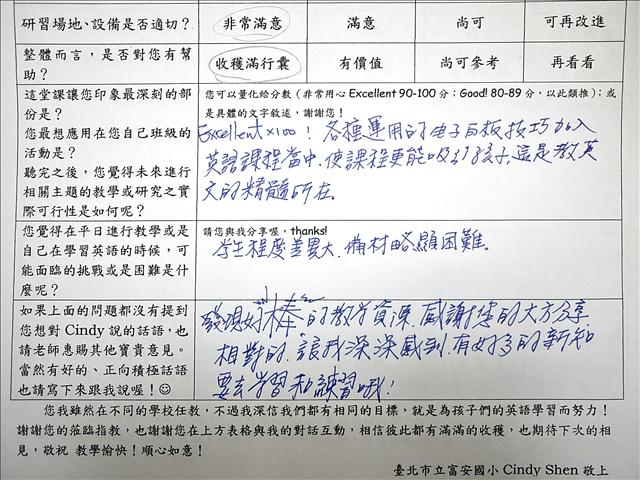 研習場地、設備是否適切？ 非常滿意 滿意 尚可 可再改進
整體而言，是否對您有幫助？ 收穫滿行囊 有價值 尚可參考 再看看
這堂課讓您印象最深刻的部
份是？
您最想應用在您自己班級的
活動是？
聽完之後，您覺得未來進行
相關主題的教學或研究之實
際可行性是如何呢？
您可以量化給分數（非常用心 Excellent 90-100 分；Good! 80-89 分，以此類推）；或
是具體的文字敘述，謝謝您！
Excellent x100！各種運用的电子白板技巧加入
英語課程當中，使課程更能吸引孩子，這是教英
文的精髓所在。
您覺得在平日進行教學或是
自己在學習英語的時候，可
能面臨的挑戰或是困難是什
麼呢？
請您與我分享喔，thanks!
學生程度差異大，備材略顯困難。
如果上面的問題都沒有提到
您想對 Cindy 說的話語，也
請老師惠賜其他寶貴意見。
當然有好的、正向積極話語
也請寫下來跟我說喔！☺
發現好棒的教學資源，感謝您的大方分享
相對的，讓我深深感到，有好多的新知
要去學習和練習哦！
您我雖然在不同的學校任教，不過我深信我們都有相同的目標，就是為孩子們的英語學習而努力！
謝謝您的蒞臨指教，也謝謝您在上方表格與我的對話互動，相信彼此都有滿滿的收穫，也期待下次的相
見，敬祝 教學愉快！順心如意！
臺北市立富安國小 Cindy Shen 敬上